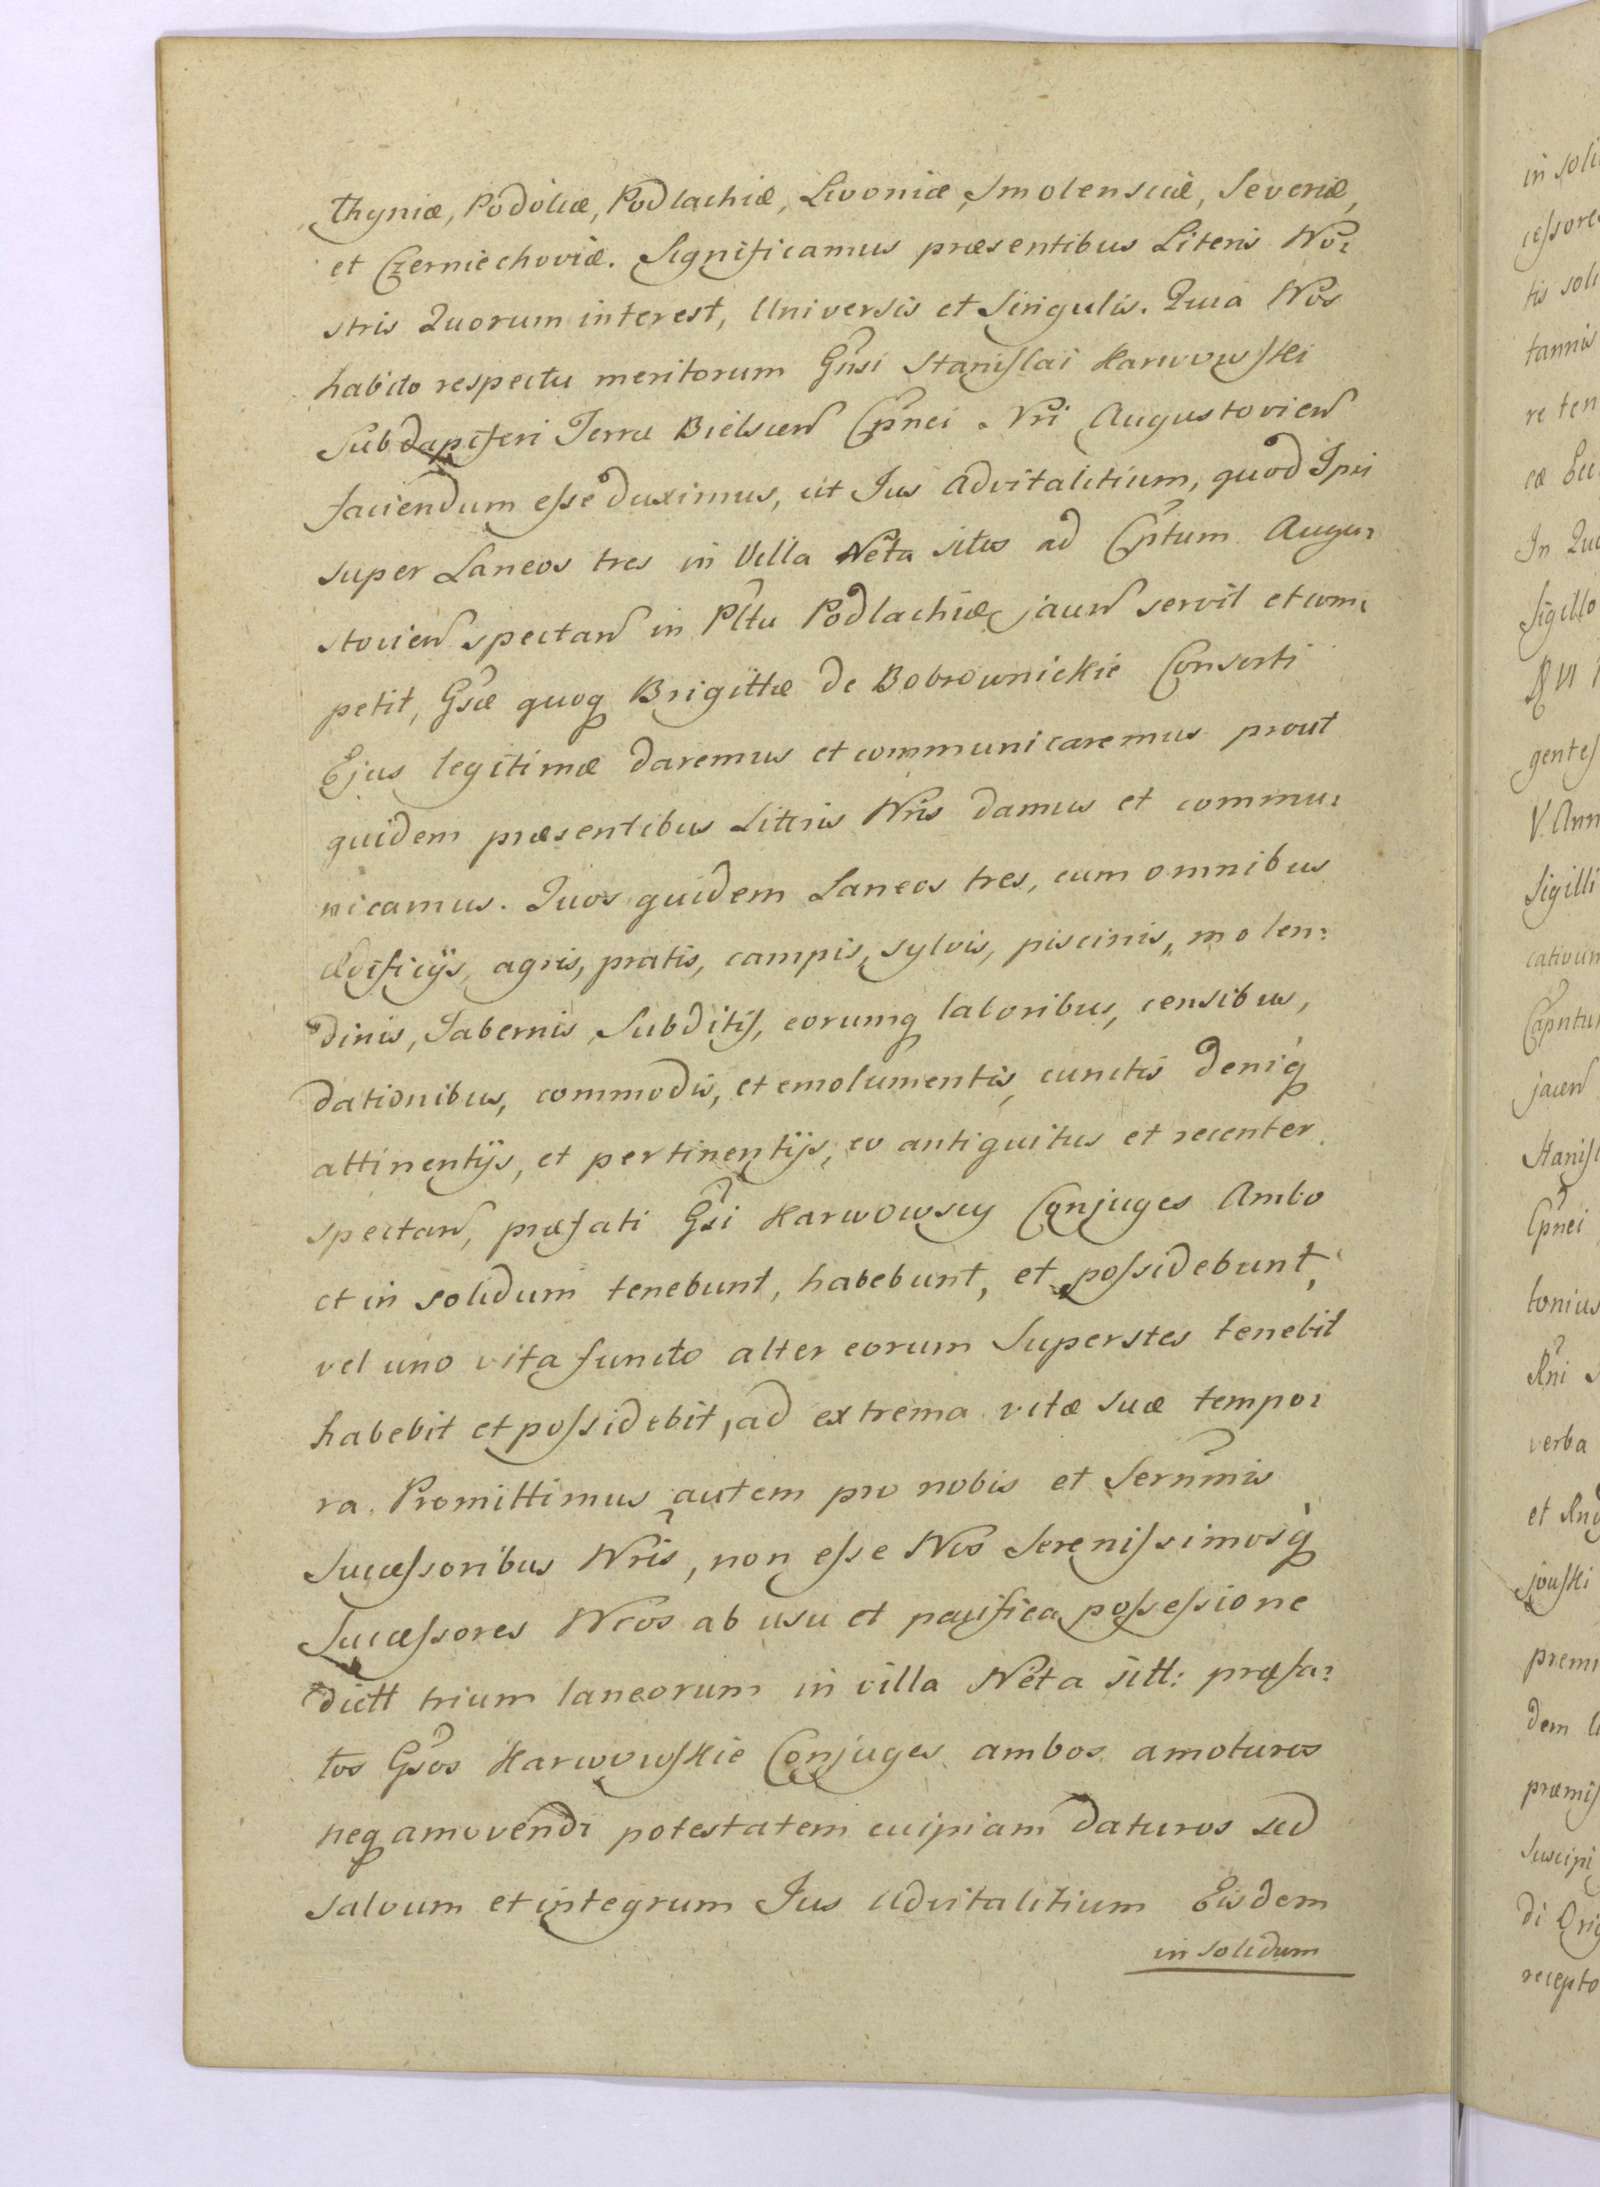 thyniæ, Podoliæ, Podlachiæ, Livoniæ, Smolensciæ, Severiæ,
et Czerniechoviæ. Significamus præsentibus Literis No:
stris Quorum interest, Universis et Singulis. Quia Nos
habito respectu meritorum Gnsi Stanislai Karwowski
Subdapiferi Terræ Bielscen Cpnei Nri Augustovien
faciendum esse duximus, ut Jus Advitalitium, quod Ipsi
super Laneos tres in Villa Neta sitos ad Cptum Augu:
stovien spectan in Pltu Podlachiæ jacen servit et com:
petit, Gsæ quoq Brigittæ de Bobrownickie Consorti
Ejus legitimæ daremus et communicaremus prout
quidem præsentibus Literis Nris damus et commu:
nicamus. Quos quidem Laneos tres, cum omnibus
ædificijs, agris, pratis, campis, sylvis, piscinis, molen:
dinis, Tabernis, Subditis, eorumq laboribus, censibus,
dationibus, commodis, et emolumentis, cunctis deniq
attinentijs, et pertinentijs, eo antiquitus et recenter
spectan, præfati Gsi Karwowscy Conjuges Ambo
et in solidum tenebunt, habebunt, et possidebunt,
vel uno vita functo alter eorum Superstes tenebit
habebit et possidebit, ad extrema vitæ suæ tempo:
ra. Promittimus autem pro nobis et Sernmis
Successoribus Nris, non esse Nos Serenissimosq
Successores Nros ab usu et pacifica possessione
dictt trium laneorum in villa Neta sitt: præfa:
tos Gsos Karwowskie Conjuges ambos amoturos
neq amovendi potestatem cuipiam daturos sed
salvum et integrum Jus Advitalitium Eisdem
in solidum
in soli
cessore
tis soli
tannis
re ten
cæ
In Qu
Sigillo
gentes
V. Ann
Sigilli
cativum
Capntu
jacen
Stanisl
Cpnei
tonius
verba
et
premi
dem
præmis
Suscipi
di Orig
recepto